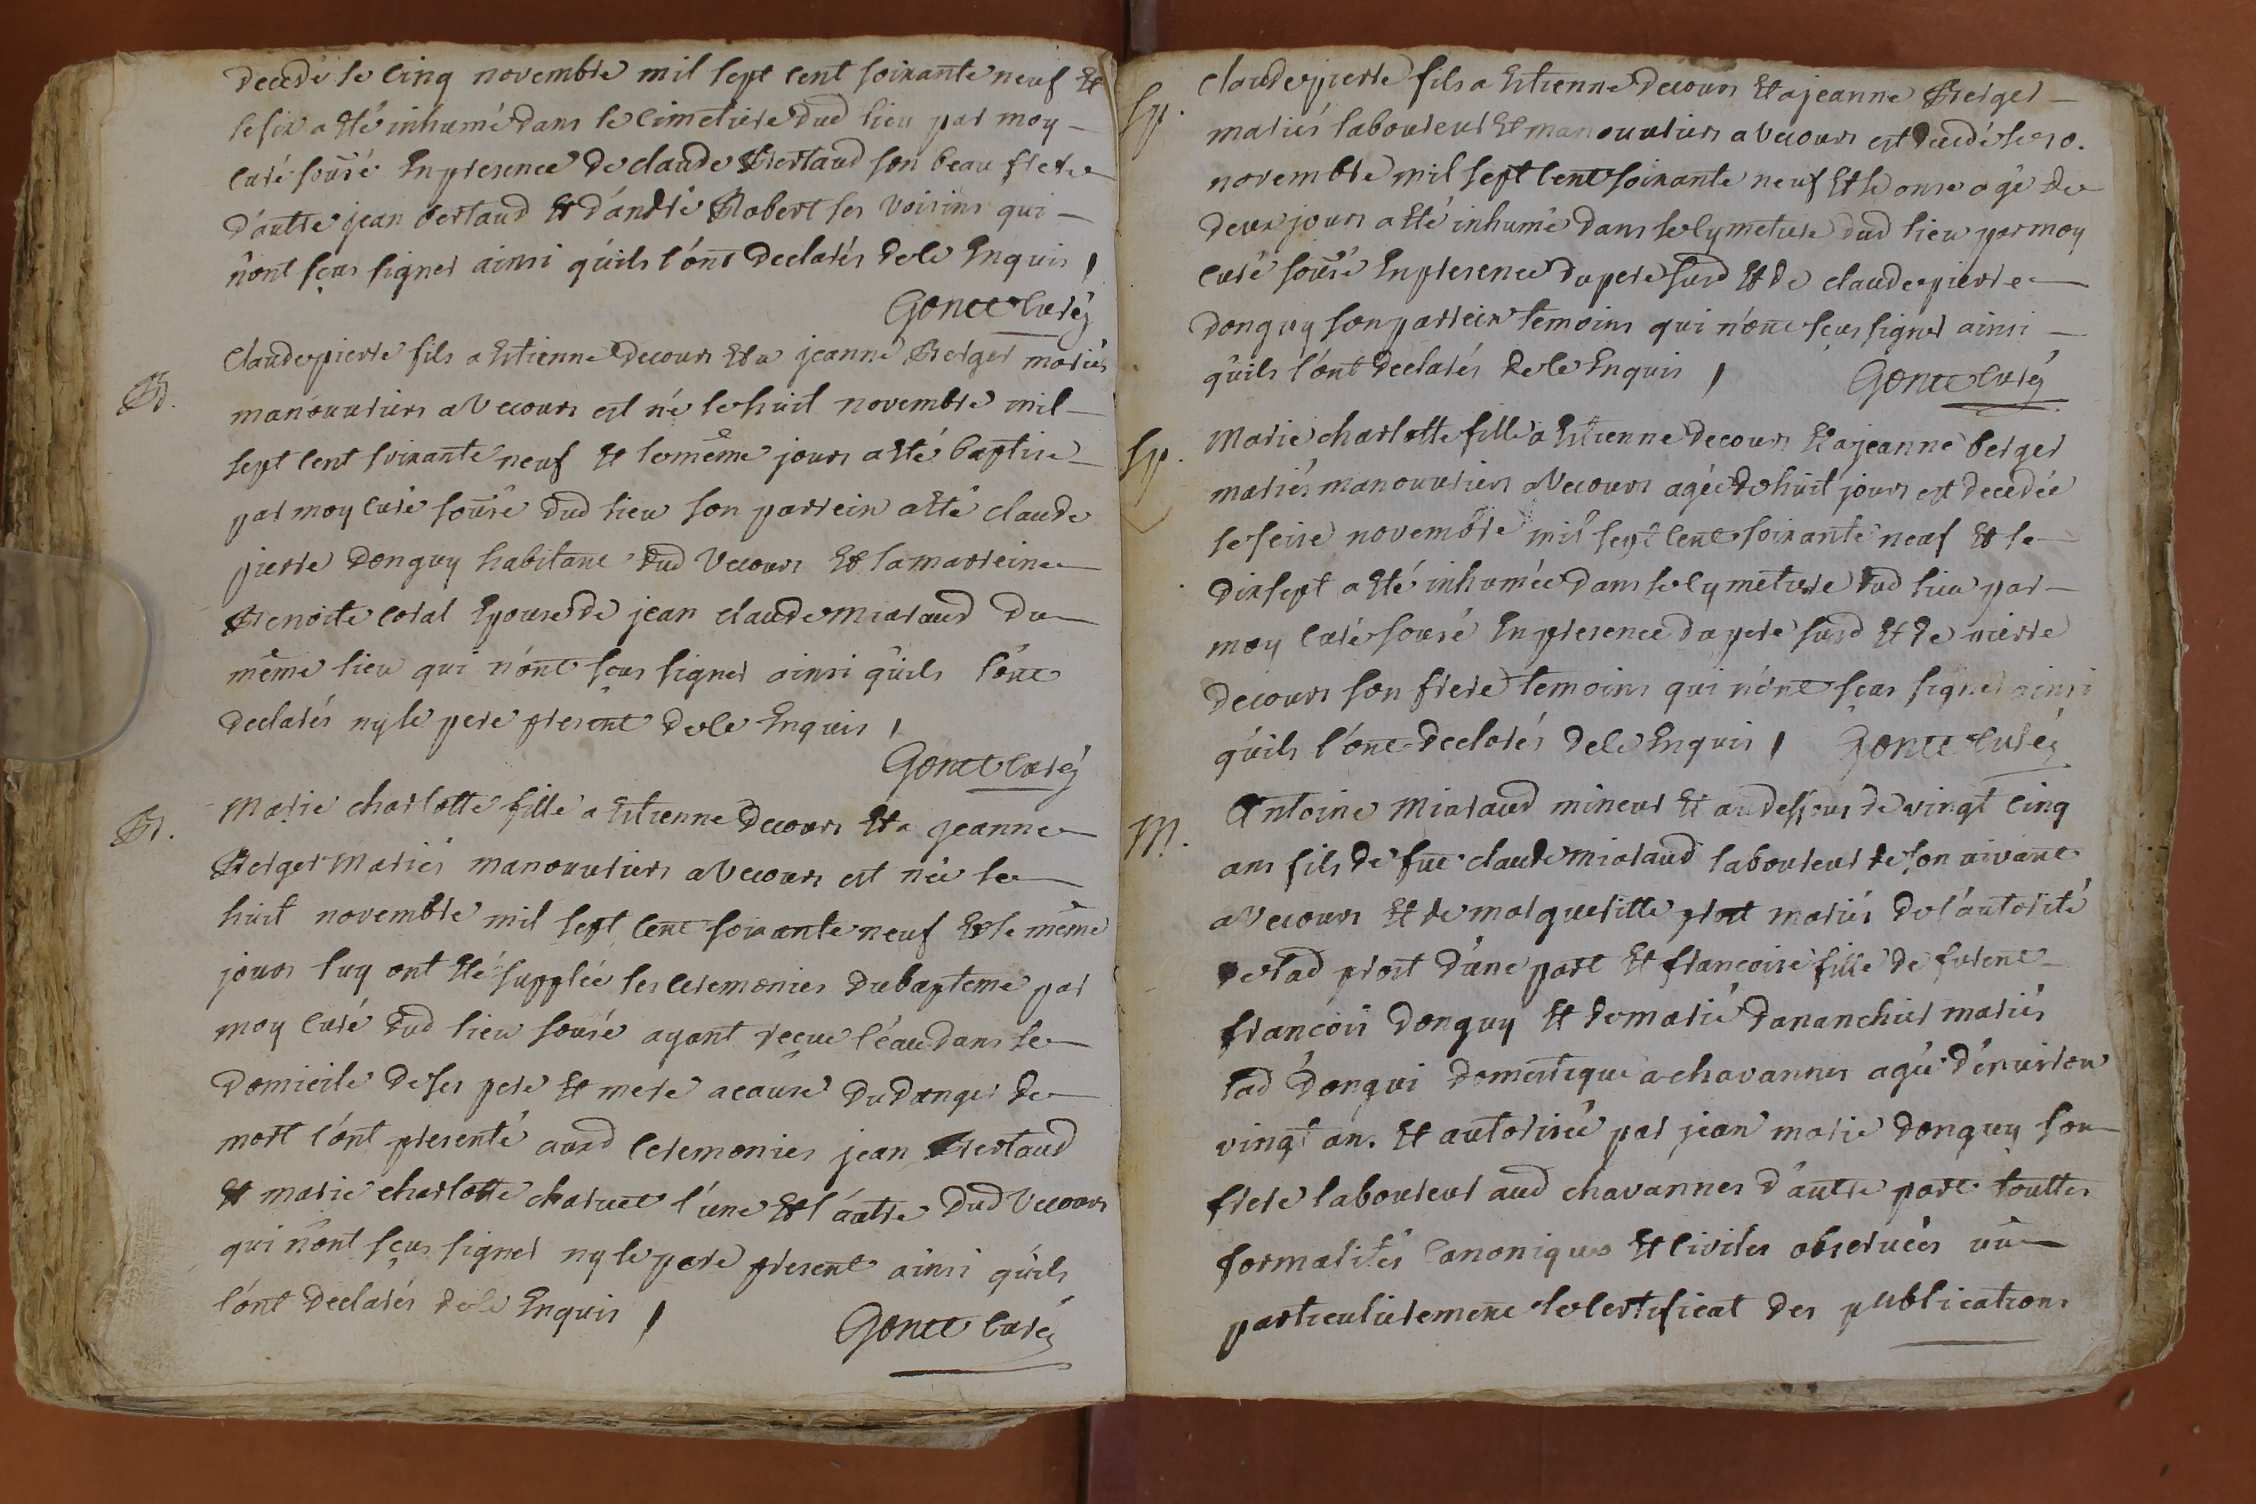 decedé le cinq novembre mil sept cent soixante neuf Et
le six a Eté inhumé dans le cimetiere dud lieu par moy
curé sousé En presence de claude Bertaud son beau frere
d'autre jean bertaud Et d'andré Robert ses voisins qui
n'ont sçus signer ainsi qu'ils l'ont declarés de ce Enquis
Gonet curé
Claude pierre fils a Estienne decours Et a jeanne Berger mariés
B.
manouvriers a Vecours est né le huit novembre mil
sept cent soixante neuf Et le même jours a Eté baptisé
par moy curé sousé dud lieu son parrein a Eté claude
pierre donguy habitant dud Vecours Et la marreine
Benoite coral Epouse de jean claude miaraud du
même lieu qui n'ont sçus signer ainsi qu'ils l'ont
declarés ny le pere present de ce Enquis
Gonet curé
B.
Marie charlotte fille a Estienne decours Et a jeanne
Berger Mariés manouvriers a Vecours est née le
huit novembre mil sept cent soixante neuf Et le même
jours luy ont Eté supplée les ceremonies du bapteme par
moy curé dud lieu sousé ayant reçue l'eau dans le
domicile de ses pere Et mere a cause du danger de
mort l'ont presenté auxd ceremonies jean Bertaud
Et marie charlotte charvet l'une Et l'autre dud Vecours
qui n'ont sçus signer ny le pere present ainsi qu'ils
l'ont declarés de ce Enquis
Gonet curé
Claude pierre fils a Estienne decours Et a jeanne Berger
Sp.
mariés laboureur Et manouvriers a Vecours est decedé le 10.
novembre mil sept cent soixante neuf Et le onse agé de
deux jours a Eté inhumé dans le cymetiere dud lieu par moy
curé sousé En presence du pere susd Et de claude pierre
donguy son parrein temoins qui n'ont sçus signer ainsi
qu'ils l'ont declarés de ce Enquis
Gonet curé
Sp.
Marie charlotte fille a Estienne decours Et a jeanne berger
mariés manouvriers a Vecours agée de huit jours est decedée
le seise novembre mil sept cent soixante neuf Et le
dix sept a Eté inhumée dans le cymetiere dud lieu par
moy curé sousé En presence du pere susd Et de pierre
decours son frere temoins qui n'ont sçus signer ainsi
qu'ils l'ont declarés de ce Enquis Gonet curé
M.
Antoine Miaraud mineur Et au dessous de vingt cinq
ans fils de fut claude miaraud laboureur de son vivant
a Vecours Et de margueritte prost mariés de l'autorité
de lad prost d'une part Et francoise fille de furent
francois donguy Et de marie dananchier mariés
lad donqui domestique a chavannes agée d'environ
vingt an. Et autorisée par jean marie donguy son
frere laboureur aud chavannes d'autre part toutes
formalités canoniques Et civiles observées vû
particulierement le certificat des publications